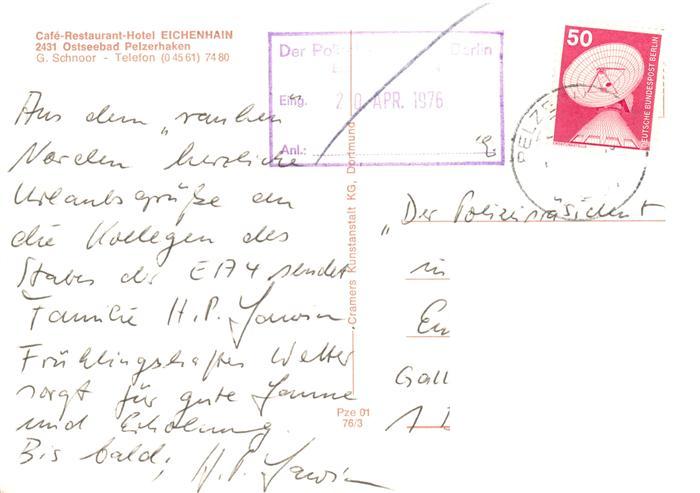 Café-Restaurant-Hotel EICHENHAIN
2431 Ostseebad Pelzerhaken
G. Schnoor - Telefon (0 45 61) 74 80
Aus dem „rauhen“
Norden herzliche
Urlaubsgrüße an
die Kollegen des
Stabes der E174 sendet
Familie H.P.
Frühlingshaftes Wetter
sorgt für gute Laune
und Erholung.
Bis bald, H.P.
Der Berlin
Eing. 2 0. APR. 1976
Anl.:
Cramers Kunstanstalt KG, Dortmund
Pze 01
76/3
50
DEUTSCHE BUNDESPOST BERLIN
PELZE
„Der Polizeipräsident
in